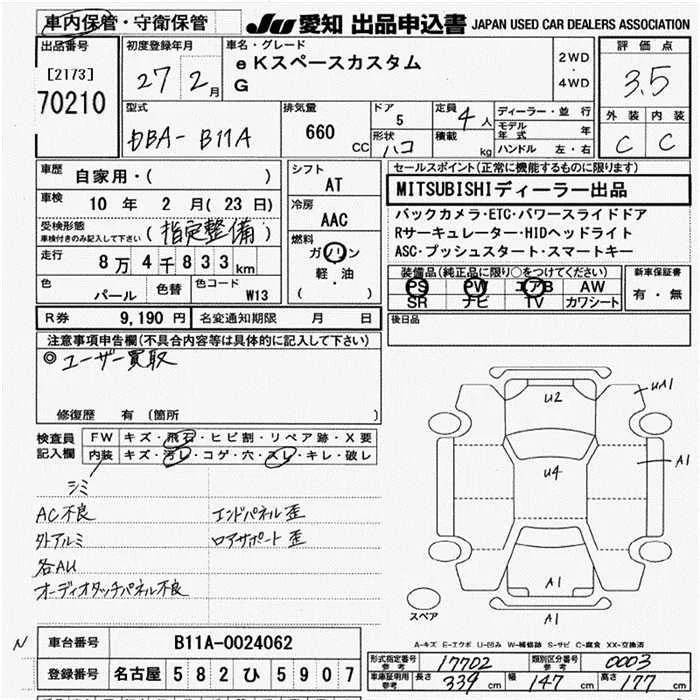 車内保管・守衛保管
JU 愛知 出品申込書 JAPAN USED CAR DEALERS ASSOCIATION
出品番号
[2173]
70210
初度登録年月
27年 2月
車名・グレード
eKスペースカスタム
G
2WD
・
4WD
評価点
3.5
外装 内装
C C
型式
DBA-B11A
排気量
660 CC
ドア
5
形状
ハコ
定員
4人
積載
kg
ディーラー・並行
モデル年式 年
ハンドル 左・右
車歴
自家用・( )
車検
10年 2月(23日)
受検形態
車検付きのみ記入して下さい
(指定整備)
走行
8万4千833km
色
パール
色替
色コード
W13
シフト
AT
冷房
AAC
燃料
ガソリン
軽・油
( )
セールスポイント(正常に機能するものに限ります)
MITSUBISHIディーラー出品
バックカメラ・ETC・パワースライドドア
Rサーキュレーター・HIDヘッドライト
ASC・プッシュスタート・スマートキー
装備品(純正品に限り○をつけてください)
PS PW エアB AW
SR ナビ TV カワシート
新車保証書
有・無
R券 9,190円
名変通知期限 月 日
後日品
注意事項申告欄(不具合内容等は具体的に記入して下さい)
◎ユーザー買取
修復歴 有(箇所 )
検査員
記入欄
FW キズ・飛石・ヒビ割・リペア跡・X要
内装 キズ・汚レ・コゲ・穴・スレ・キレ・破レ
シミ
AC不良
外アルミ
各AU
オーディオタッチパネル不良
エンドパネル歪
ロアサポート歪
U2
UA1
U4
A1
A1
A1
スペア
A-キズ E-エクボ U-凹み W-補修跡 S-サビ C-腐食 XX-交換済
N
車台番号
B11A-0024062
登録番号
名古屋 582 ひ 5907
形式指定番号
参考
17702
類別区分番号
参考
0003
車庫証明用
参考
長さ 339 cm
幅 147 cm
高さ 177 cm